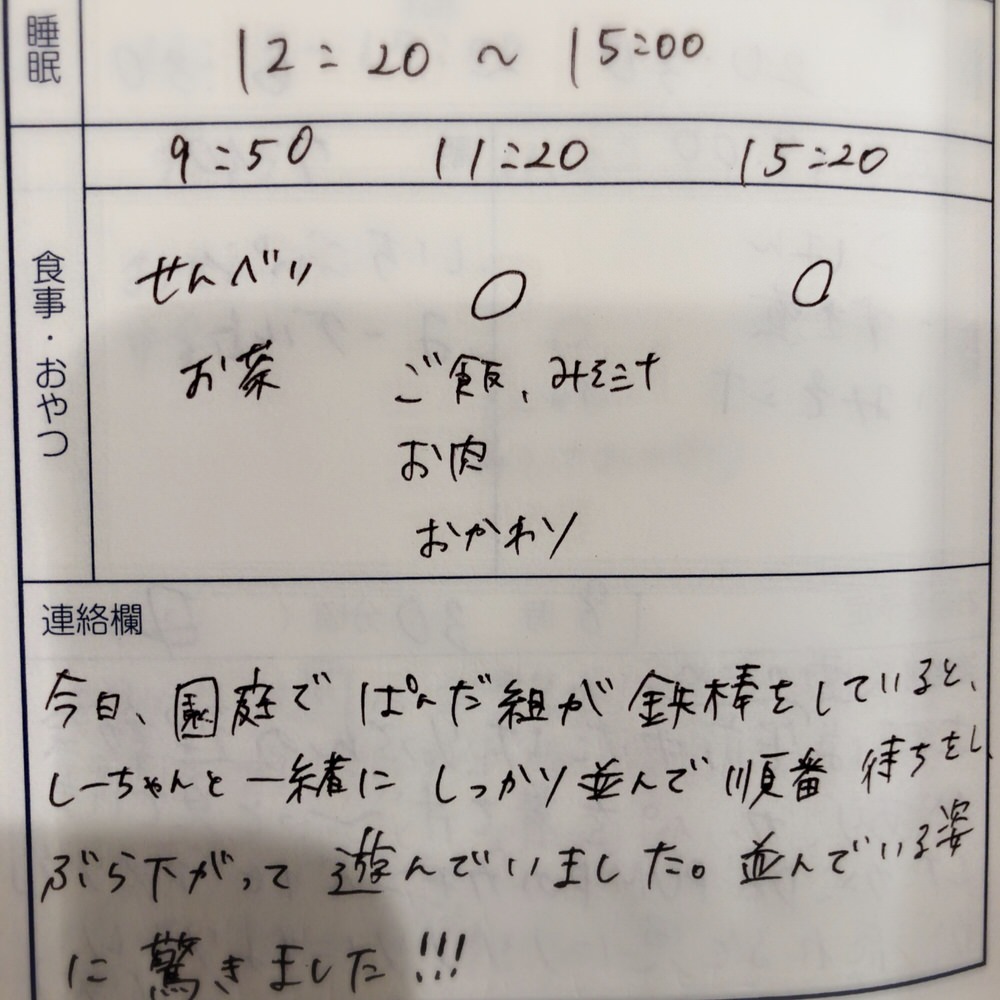 睡眠
12:20 ~ 15:00
9:50 11:20 15:20
食事・おやつ
せんべい ○ ○
お茶 ご飯、みそ汁
お肉
おかわり
連絡欄
今日、園庭で ぱんだ組が 鉄棒をしていると、
しーちゃんと 一緒に しっかり並んで 順番 待ちをし
ぶら下がって 遊んでいました。並んでいる姿
に 驚きました!!!